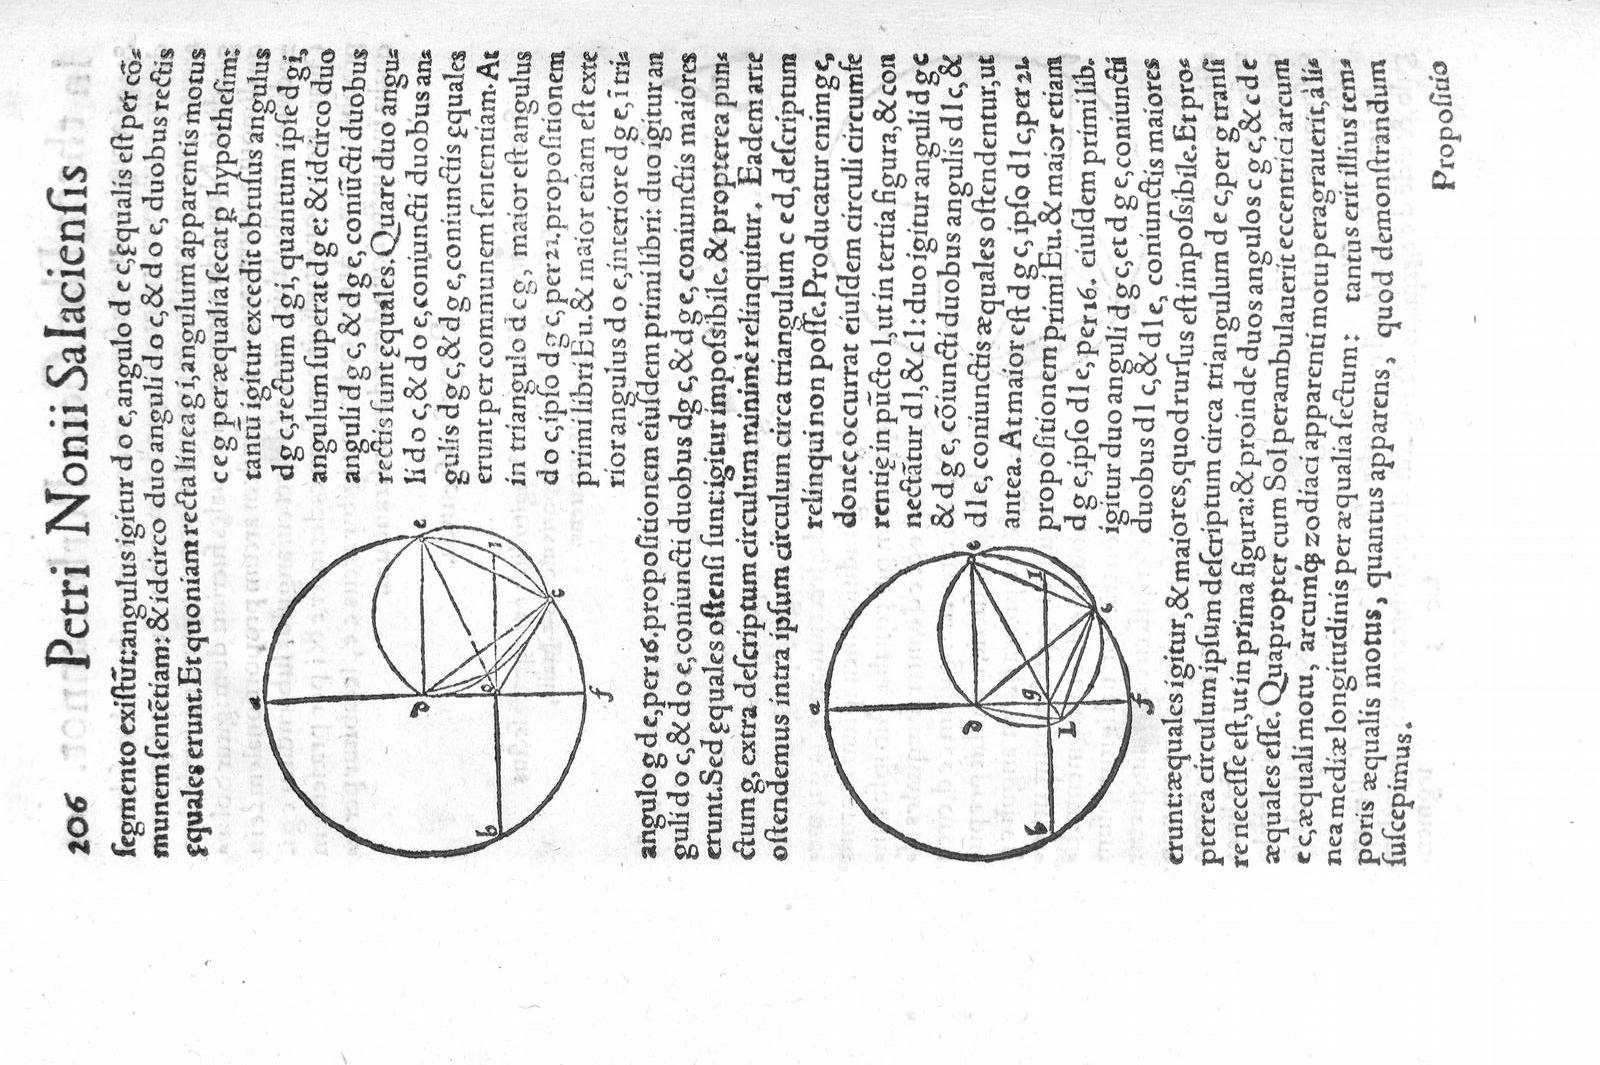 206 Petri Nonii Salaciensis
segmento existũt: angulus igitur d o e, angulo d e c, ęqualis est per cō-
munem sentẽtiam: & idcirco duo anguli d o c, & d o e, duobus rectis
ęquales erunt. Et quoniam recta linea g i, angulum apparentis motus
c e g per æqualia secat ꝑ hypothesim:
tantũ igitur excedit obtusus angulus
d g c, rectum d g i, quantum ipse d g i,
angulum superat d g e: & idcirco duo
anguli d g c, & d g e, coniũcti duobus
rectis sunt ęquales. Quare duo angu-
li d o c, & d o e, coniuncti duobus an-
gulis d g c, & d g e, coniunctis ęquales
erunt per communem sententiam. At
in triangulo d c g, maior est angulus
d o c, ipso d g c, per 21. propositionem
primi libri Eu. & maior etiam est exte
rior angulus d o e, interiore d g e, ĩ tri-
angulo g d e, per 16. propositionem eiusdem primi libri: duo igitur an
guli d o c, & d o e, coniuncti duobus d g c, & d g e, coniunctis maiores
erunt. Sed ęquales ostensi sunt: igitur impossibile. & propterea pun-
ctum g, extra descriptum circulum minimè relinquitur. Eadem arte
ostendemus intra ipsum circulum circa triangulum c e d, descriptum
relinqui non posse. Producatur enim g e,
donec occurrat eiusdem circuli circumfe
rentię in pũcto l, ut in tertia figura, & con
nectãtur d l, & c l: duo igitur anguli d g c
& d g e, cõiuncti duobus angulis d l c, &
d l e, coniunctis æquales ostendentur, ut
antea. At maior est d g c, ipso d l c, per 21
propositionem primi Eu. & maior etiam
d g e, ipso d l e, per 16. eiusdem primi lib.
igitur duo anguli d g c, et d g e, coniuncti
duobus d l c, & d l e, coniunctis maiores
erunt: æquales igitur, & maiores, quod rursus est impossibile. Et pro-
pterea circulum ipsum descriptum circa triangulum d e c, per g transi
re necesse est, ut in prima figura: & proinde duos angulos c g e, & c d e
æquales esse. Quapropter cum Sol perambulauerit eccentrici arcum
e c, æquali motu, arcumq́ꝫ zodiaci apparenti motu peragrauerit, à li-
nea mediæ longitudinis per æqualia sectum: tantus erit illius tem-
poris æqualis motus, quantus apparens, quod demonstrandum
suscepimus.
Propositio
a
b
d
o
i
e
c
f
a
b
d
g
L
I
e
c
f